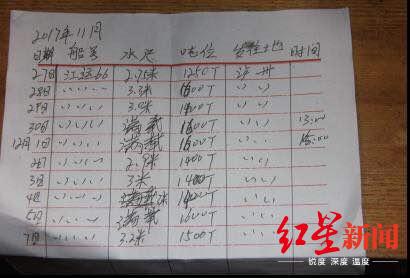 2017年11月
日期 船号 水尺 吨位 时间
27日 2.95米 1250T
28日 〃〃〃〃 3.3米 1600T 〃〃
29日 〃〃〃〃 1600T 〃〃
30日 〃〃〃〃 满载 1600T 〃〃 13:00
12月1日 〃〃〃〃 满载 1600T 〃〃 15:00
2日 〃〃〃〃 1400T 〃〃
3日 〃〃〃〃 3米 1400T 〃〃
4日 〃〃〃〃 〃〃〃
5日 〃〃〃〃 满载 1600T 〃〃〃
7日 〃〃〃〃 3.2米 1500T 〃〃〃
红星新闻
锐度 深度 温度